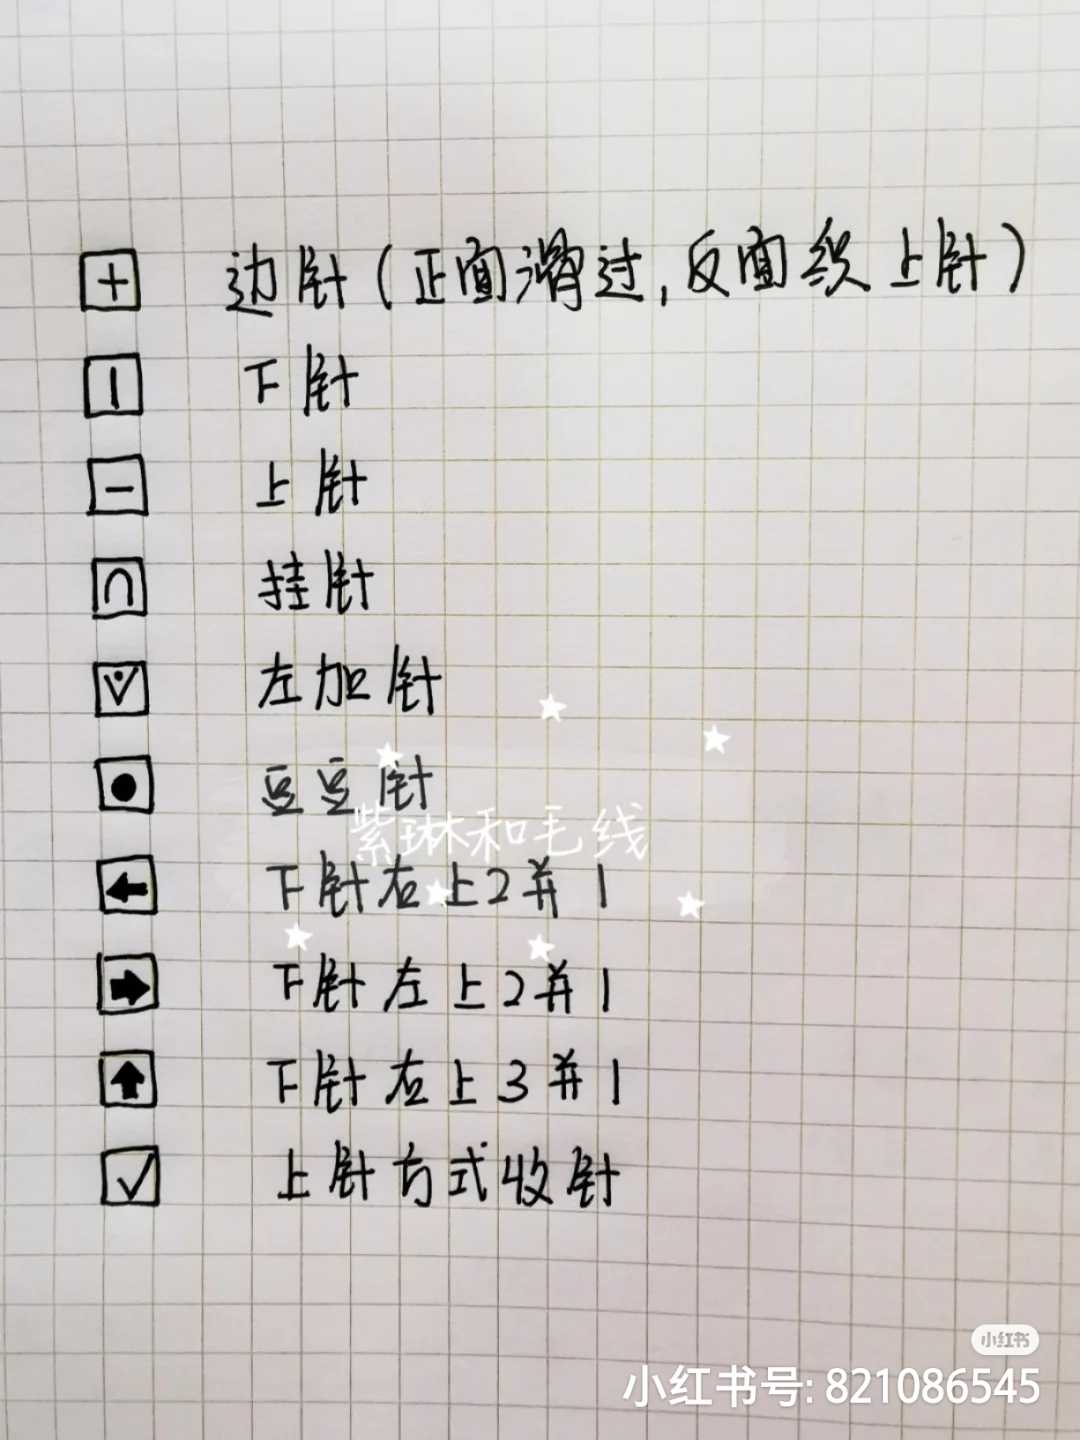 边针(正面滑过,反面织上针)
下针
上针
挂针
左加针
豆豆针
紫琳和毛线
下针右上2并1
下针左上2并1
下针右上3并1
上针方式收针
小红书
小红书号: 821086545